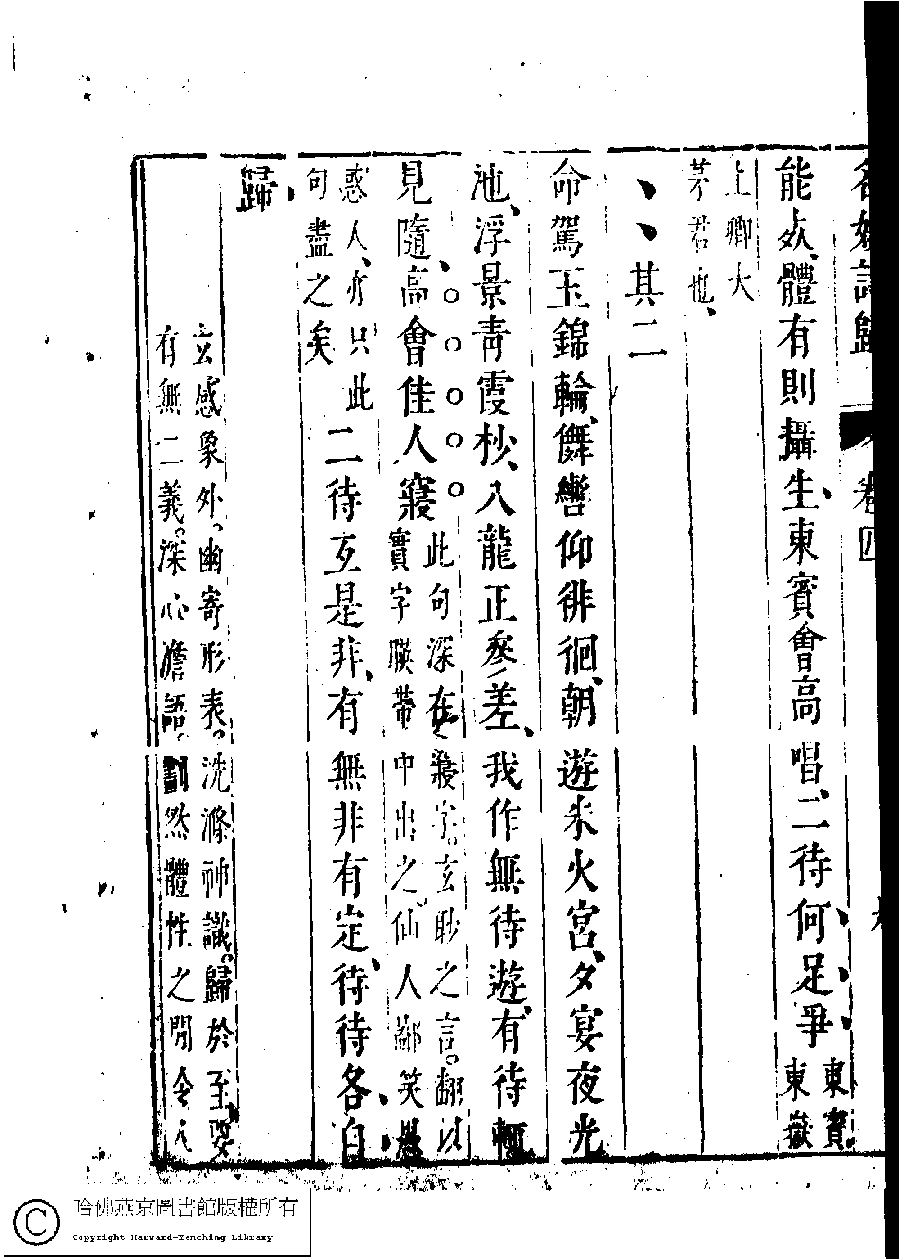 名媛詩歸 卷四
能死、體有則攝生、東賓會高唱、二待何足爭 東賓
東嶽
上卿大
茅君也、
其二
命駕玉錦輪、儛轡仰徘徊、朝遊朱火宮、夕宴夜光
池、浮景青霞杪、八龍正參差、我作無待遊、有待輒
見隨、高會佳人寢 此句深在寢字。玄眇之言。翻以
實字帶中出之、仙人鄙笑愚
惑人、亦只此
句盡之矣
二待互是非、有無非有定、待待各自
歸、
玄感象外。幽寄形表。洗滌神識。歸於至要
有無二義。深心澹語。劃然體性之間令人
哈佛燕京圖書館版權所有
Copyright Harvard-Yenching Library